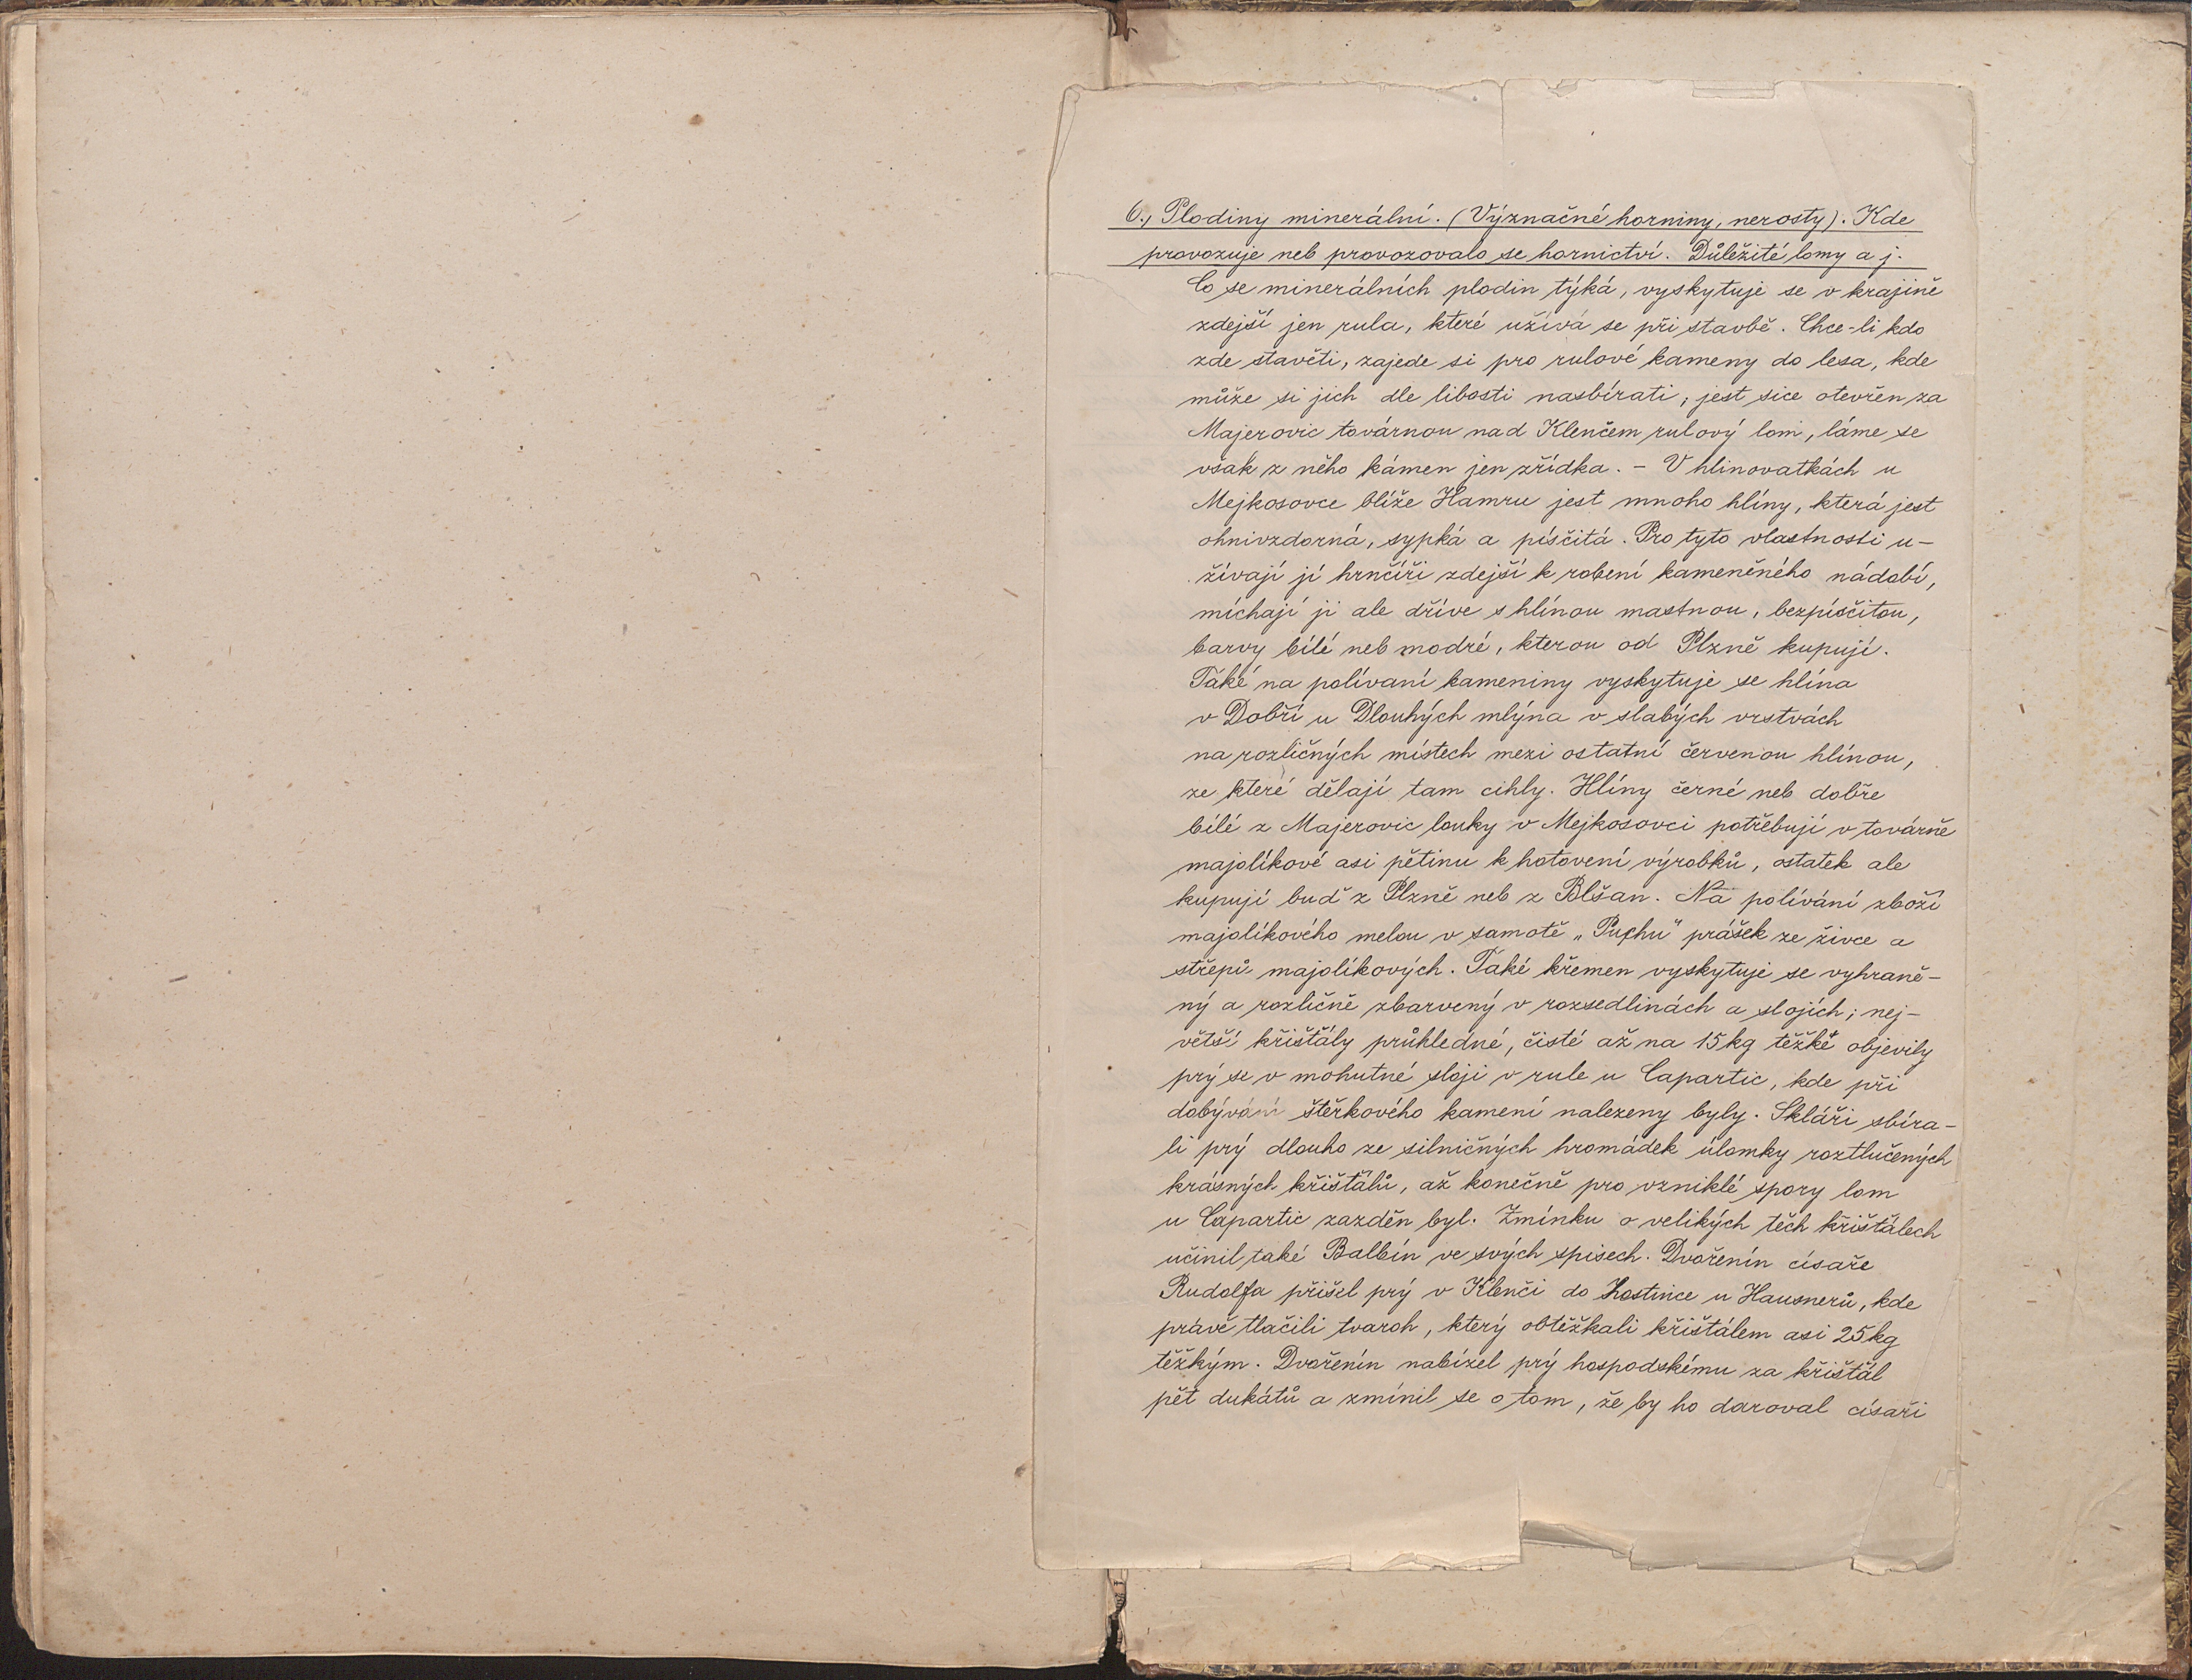 6., Plodiny minerální. (Význačné horniny, nerosty). Kde
provozuje neb provozovalo se hornictví. Důležité lomy a j.
Co se minerálních plodin týká, vyskytuje se v krajině
zdejší jen rula, které užívá se při stavbě. Chce-li kdo
zde stavěti, zajede si pro rulové kameny do lesa, kde
může si jich dle libosti nasbírati, jest sice otevřen za
Majerovic továrnou nad Klenčem rulový lom, láme se
však z něho kámen jen zřídka. - V hlinovatkách u
Mejkosovce blíže Hamru jest mnoho hlíny, která jest
ohnivzdorná, sypká a písčitá. Pro tyto vlastnosti u-
žívají jí hrnčíři zdejší k robení kameněného nádobí,
míchají ji ale dříve s hlínou mastnou, bezpísčitou,
barvy bílé neb modré, kterou od Plzně kupují.
Také na polívaní kameniny vyskytuje se hlína
v Dobři u Dlouhých mlýna v slabých vrstvách
na rozličných místech mezi ostatní červenou hlínou,
ze které dělají tam cihly. Hlíny černé neb dobře
bílé z Majerovic louky v Mejkosovci potřebují v továrně
majolíkové asi pětinu k hotovení výrobků, ostatek ale
kupují buď z Plzně neb z Blšan. Na polívání zboží
majolíkového melou v samotě „Puchu" prášek ze živce a
střepů majolíkových. Také křemen vyskytuje se vyhraně-
ný a rozličně zbarvený v rozsedlinách a slojích; nej-
větší křišťály průhledné, čisté až na 15 kg těžké objevily
prý se v mohutné sloji v rule u Capartic, kde při
dobývání štěrkového kamení nalezeny byly. Skláři sbíra-
li prý dlouho ze silničných hromádek úlomky roztlučených
krásných křišťálů, až konečně pro vzniklé spory lom
u Capartic zazděn byl. Zmínku o velikých těch křišťálech
učinil také Balbín ve svých spisech. Dvořenín císaře
Rudolfa přišel prý v Klenči do hostince u Hausnerů, kde
právě tlačili tvaroh, který obtěžkali křišťálem asi 25 kg
těžkým. Dvořenín nabízel prý hospodskému za křišťál
pět dukátů a zmínil se o tom, že by ho daroval císaři